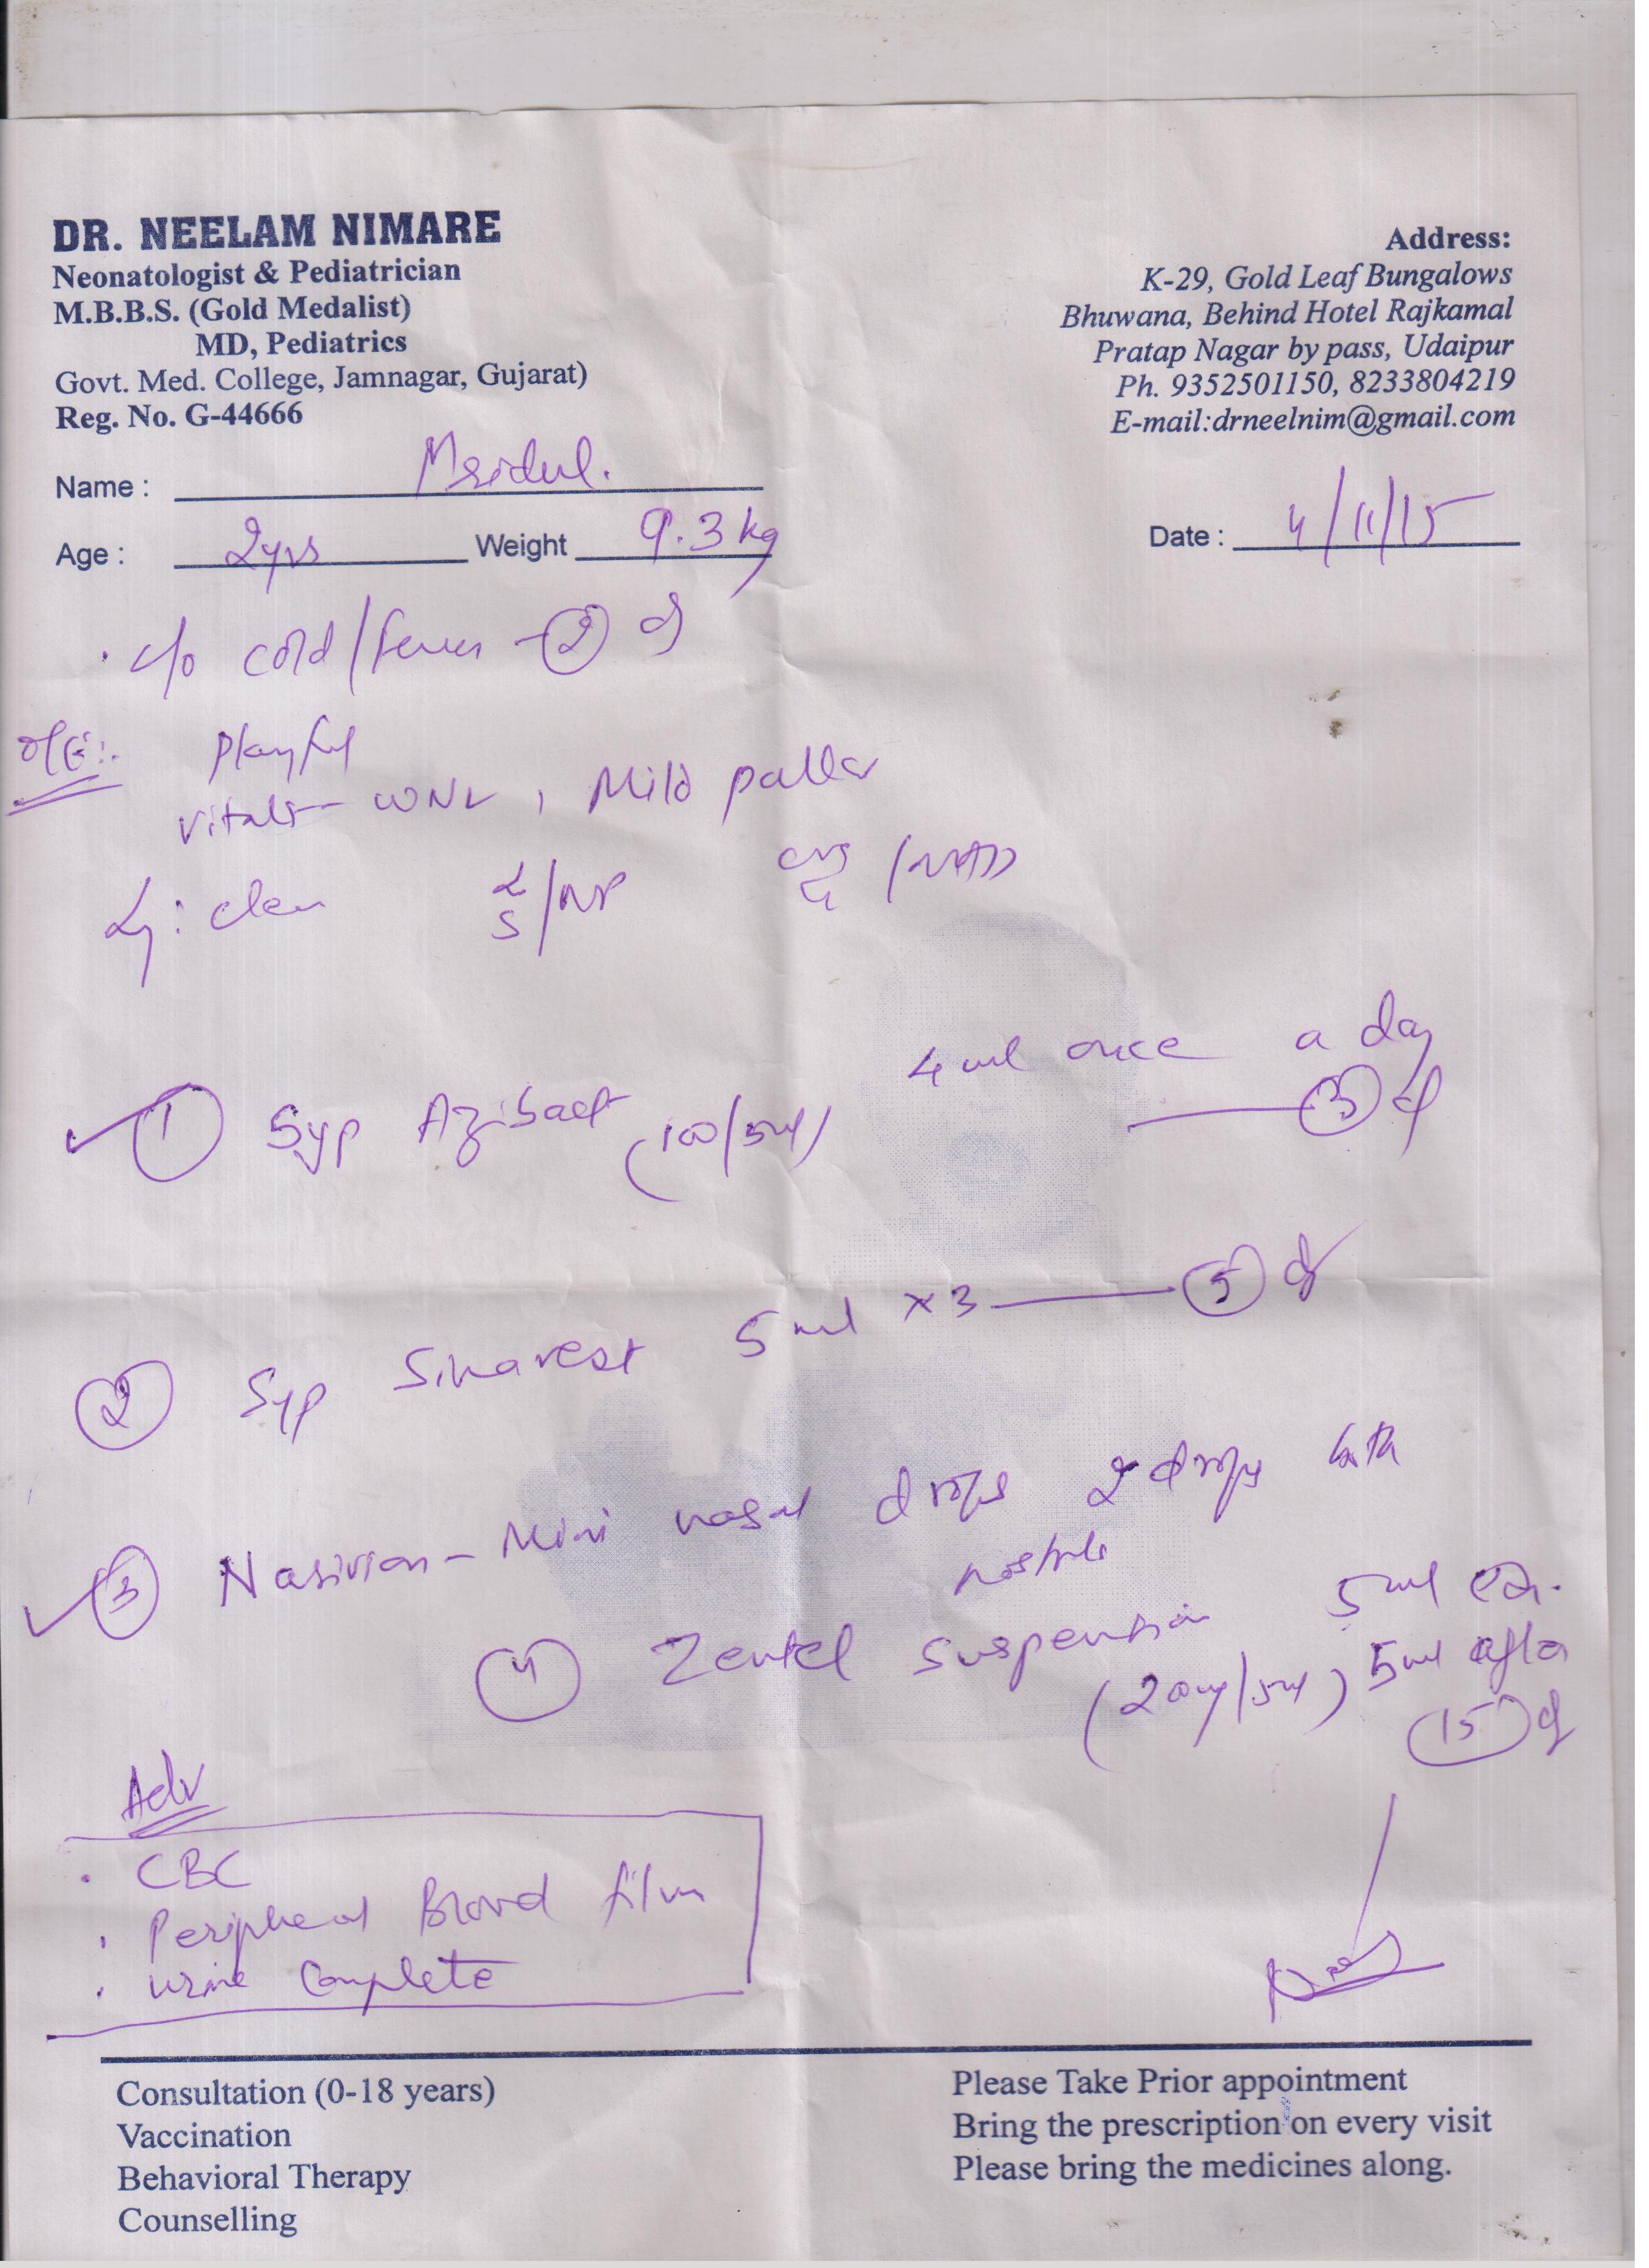 DR. NEELAM NIMARE
Neonatologist & Pediatrician
M.B.B.S. (Gold Medalist)
MD, Pediatrics
Govt. Med. College, Jamnagar, Gujarat)
Reg. No. G-44666
Address:
K-29, Gold Leaf Bungalows
Bhuwana, Behind Hotel Rajkamal
Pratap Nagar by pass, Udaipur
Ph. 9352501150, 8233804219
E-mail:drneelnim@gmail.com
Name : Mridul.
Age : 2yrs Weight 9.3 kg
Date : 4/11/15
· c/o cold/fever - 2 d
O/E:- Playful
Vitals - WNL, Mild pallor
clear
1 Syp (100/5ml) 4 ml once a day
3 d
2 Syp Sinarest 5 ml x3 5 d
3 Nasivion - Mini nasal drops 2 drops both
nostrils
4 Zentel suspension 5ml
(200mg/5ml) 5ml after
15 d
Adv
· CBC
· Peripheral Blood film
· Urine Complete
Consultation (0-18 years)
Vaccination
Behavioral Therapy
Counselling
Please Take Prior appointment
Bring the prescription on every visit
Please bring the medicines along.